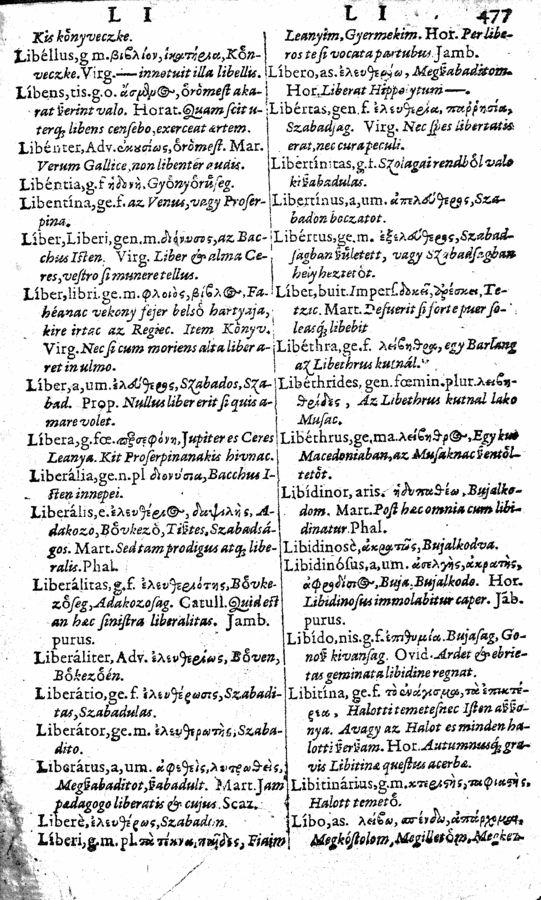 L I
L I 477
Kis kőnyveczke.
Libéllus, g m. βιβλίον, Kőn-
veczke. Virg.— innotuit illa libellis.
Líbens, tis. g. o. őrőmest aka-
rat ṽerint valo. Horat. Quam scit u-
terq; libens censebo, exerceat artem.
Libénter, Adv. ἑκυσίως, őrőmest. Mar.
Verum Gallice, non libentèr audis.
Libéntia, g. f ἡδονὴ. Győnyőrűseg.
Libentína, ge, f. az Venus, vagy Proser-
pina.
Líber, Liberi, gen. m. διόνυσος, az Bac-
chus Isten. Virg. Liber & alma Ce-
res, vestro si munere tellus.
Líber, libri. ge. m. φλοιὸς, βίβλος, Fa-
héanac vekony fejer belsó hartyaja,
kire irtac az Regiec. Item Kőnyv.
Virg. Nec si cum moriens alta liber a-
ret in ulmo.
Líber, a, um. ἐλεύθερος, Szabados, Sza-
bad. Prop. Nullus liber erit si quis a-
mare volet.
Líbera, g. fœ. Jupiter es Ceres
Leanya. Kit Proserpinanakis hivnac.
Liberália, ge, n. pl διονύσια, Bacchus I-
sten innepei.
Liberális, e. ἐλευθέριος, δαψιλὴς, A-
dakozo, Bővkező, Tiṽtes, Szabadsá-
gos. Mart. Sed tam prodigus atq; libe-
ralis. Phal.
Liberálitas, g, f. ἐλευθεριότης, Bővke-
zőseg, Adakozosag. Catull. Quid est
an hæc sinistra liberalitas. Jamb.
purus.
Liberáliter, Adv. ἐλευθερίως, Bőven,
Bőkezőén.
Liberátio, ge. f. ἐλευθέρωσις, Szabadi-
tas, Szabadulas.
Liberátor, ge. m. ἐλευθερωτὴς, Szaba-
dito.
Liberátus, a, um. ἀφεθεὶς, λυτρωθεὶς,
Megṽabaditot, ṽabadult. Mart. Jam
pædagogo liberatis & cujus. Scaz.
Liberè, ἐλευθέρως, Szabadon.
Líberi, g. m. pl. τὰ τέκνα, παῖδες, Fiaim
Leanyim, Gyermekim. Hor. Per libe-
ros te si vocata partubus Jamb.
Líbero, as. ἐλευθερόω, Megṽabaditom.
Hor. Liberat Hippolytum—.
Libértas, gen. f. ἐλευθερία, παῤῥησία,
Szabadsag. Virg. Nec spes libertatis
erat, nec cura peculi.
Libertínitas, g. f. Szolagai rendből valo
kiṽabadulas.
Libertínus, a, um. ἀπελεύθερος, Sza-
badon boczatot.
Libértus, ge. m. ἐξελεύθερος, Szabad-
sagban ṽűletett, vagy Szabadsagban
helyheztetőt.
Líber, buit. Imperf. δοκεῖ, ἀρέσκει, Te-
tzic. Mart. Deserit si forte puer so-
leasq; libebit
Libéthra, ge. f. λείβηθρα, egy Barlang
az Libethrus kutnál.
Libéthrides, gen. fœmin. plur. λειβη-
θρίδες, Az Libethrus kutnal lako
Musac.
Libéthrus, ge, ma. λείβηθρος, Egy kut
Macedoniaban, az Musaknac ṽentől-
tetőt.
Libídinor, aris. ἡδυπαθέω, Bujalko-
dom. Mart. Post hæc omnia cum libi-
dinatur. Phal.
Libidinosè, ἀκρατῶς, Bujalkodva.
Libidinósus, a, um. ἀσελγὴς, ἀκρατὴς,
ἀφροδίσιος, Buja. Bujalkodo. Hor.
Libidinosus immolabitur caper. Jāb.
purus.
Libído, nis. g. f. ἐπιθυμία. Bujasag, Go-
noṽ kivansag. Ovid. Ardet & ebrie-
tas geminata libidine regnat.
Libitína, ge, f. τὸ ἐνάγισμα, τὰ ἐπικτέ-
ρεια, Halotti temetesnec Isten aṽṽo-
nya. Avagy az Halot es minden ha-
lotti ṽerṽam. Hor. Autumnusq́; gra-
vis Libitinæ quæstus acerbæ.
Libitinárius, g. m. κτεριστὴς, ταφιαστὴς,
Halott temető.
Líbo, as. λείβω, σπένδω, ἀπάρχομαι,
Megkóstolom, Megilletőm, Megken-